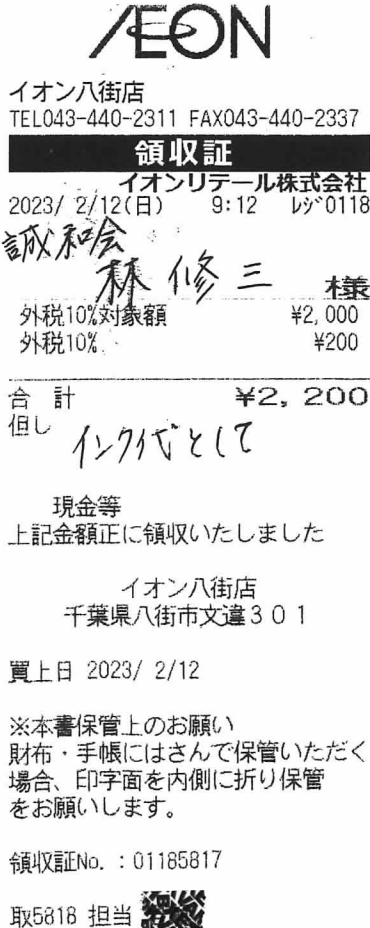 ÆON
イオン八街店
TEL043-440-2311 FAX043-440-2337
領収証
イオンリテール株式会社
2023/ 2/12(日) 9:12 レジ0118
誠和会
林 修三 様
外税10%対象額 ¥2,000
外税10% ¥200
合 計 ¥2,200
但し インク代として
現金等
上記金額正に領収いたしました
イオン八街店
千葉県八街市文違301
買上日 2023/ 2/12
※本書保管上のお願い
財布・手帳にはさんで保管いただく
場合、印字面を内側に折り保管
をお願いします。
領収証No.:01185817
取5818 担当